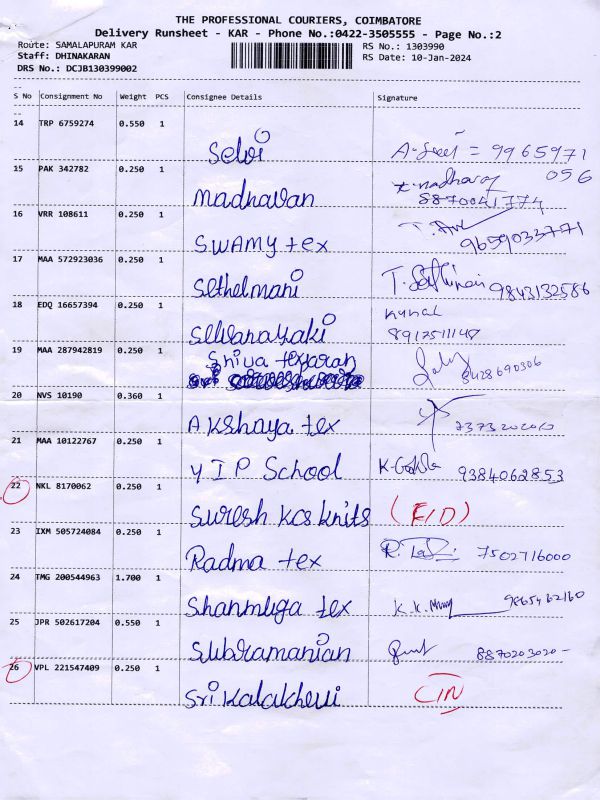 THE PROFESSIONAL COURIERS, COIMBATORE
Delivery Runsheet - KAR - Phone No.:0422-3505555 - Page No.:2
Route: SAMALAPURAM KAR RS No.: 1303990
Staff: DHINAKARAN RS Date: 10-Jan-2024
DRS No.: DCJB130399002
S No Consignment No Weight PCS Consignee Details Signature
14 TRP 6759274 0.550 1
Selvi 9965971
056
15 PAK 342782 0.250 1
Madhavan 8870041774
16 VRR 108611 0.250 1
SWAMY tex 9659033771
17 MAA 572923036 0.250 1
Sethelmani 9843132586
18 EDQ 16657394 0.250 1 Kunal
Selvanayaki 8917511147
19 MAA 287942819 0.250 1
Shiva texfarah 8428690306
20 NVS 10190 0.360 1
AKshaya tex
21 MAA 10122767 0.250 1
Y I P School 9384062853
22 NKL 8170062 0.250 1
Suresh kcs knits (F/D)
23 IXM 505724084 0.250 1
Radma tex 7502716000
24 TMG 200544963 1.700 1
Shanmuga tex 9865462160
25 JPR 502617204 0.550 1
Subramanian 8870203020-
26 VPL 221547409 0.250 1
CIN